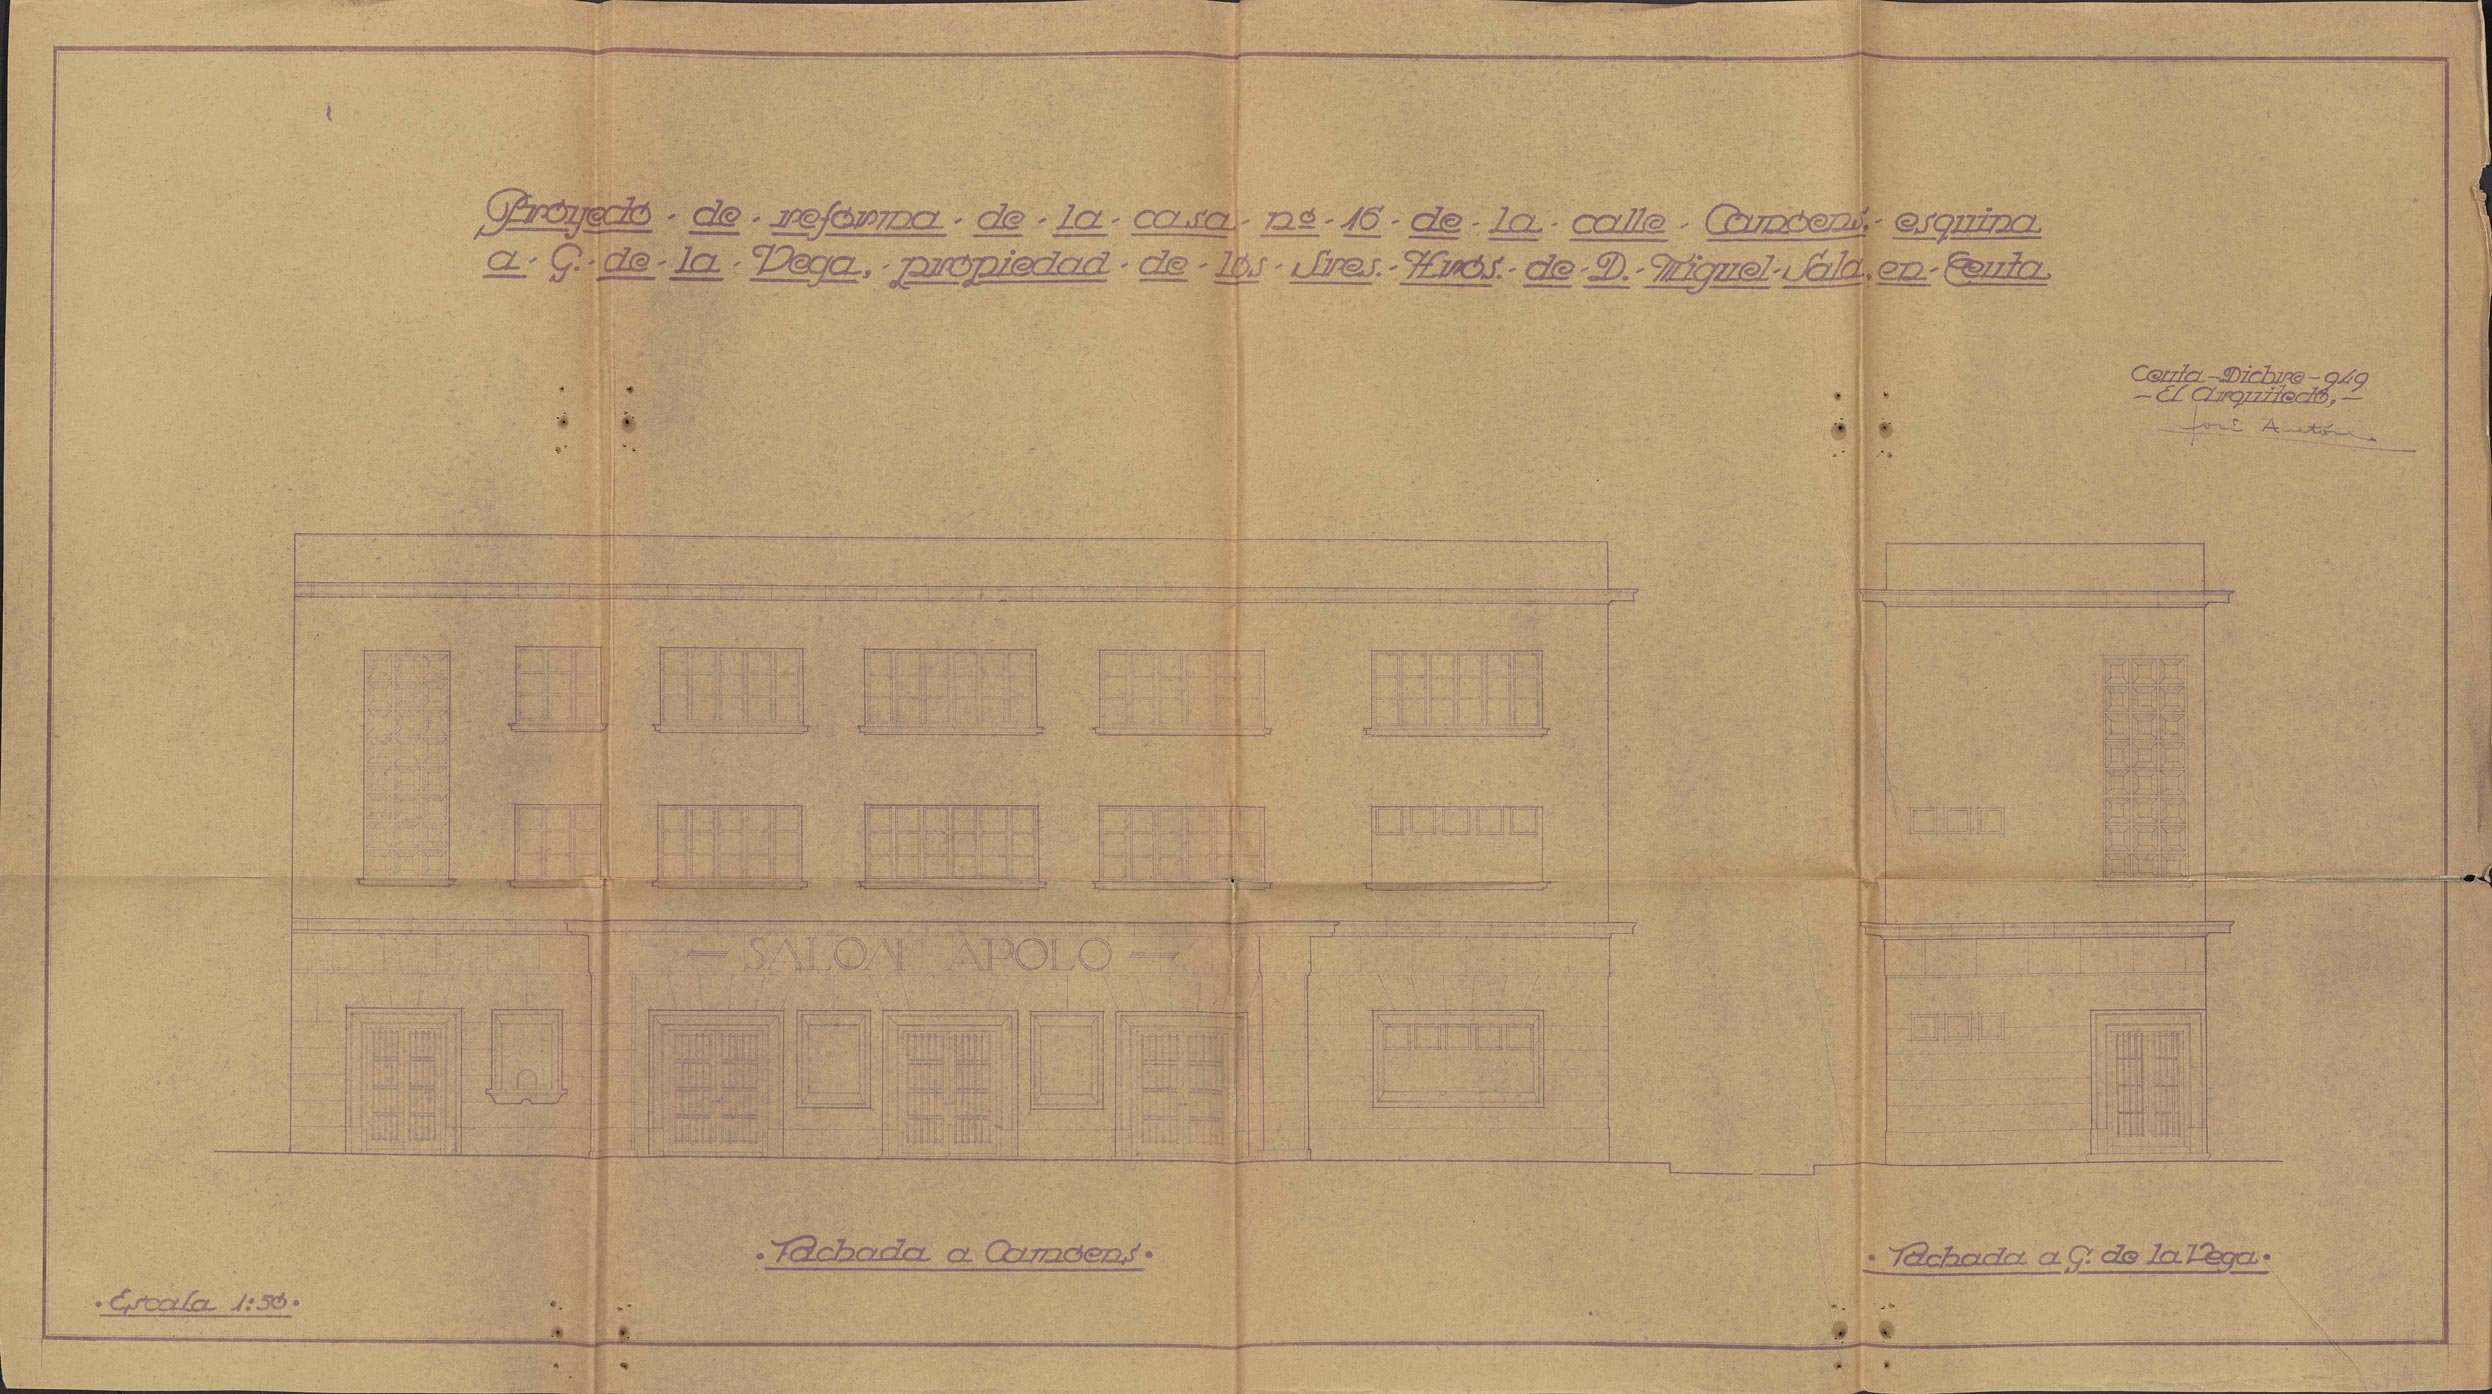 Proyecto · de · reforma · de · la · casa · nº · 16 · de · la · calle · Camoens · esquina
a · G. · de · la · Vega, · propiedad · de · los · Sres. · Hros. · de · D. · Miguel · Sala, en · Ceuta
Ceuta – Dicbre – 949
– El Arquitecto, –
José Antón
— SALON APOLO —
· Fachada a Camoens ·
· Fachada a G. de la Vega ·
· Escala 1:50 ·